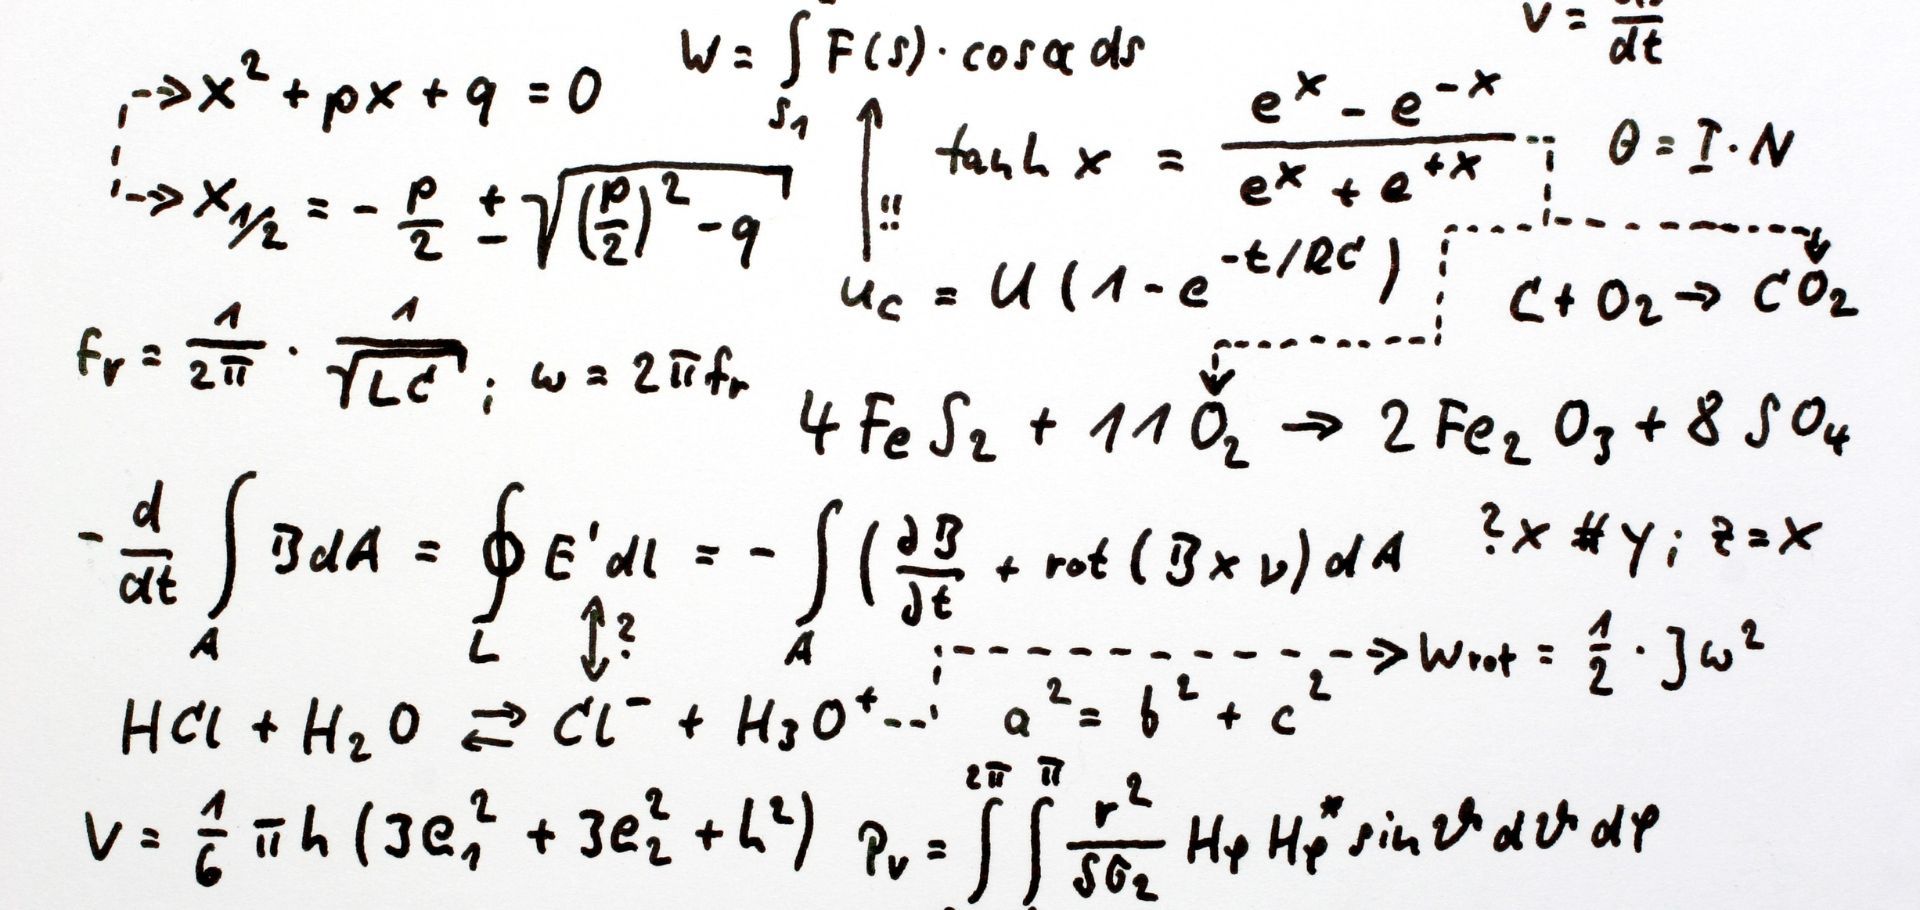 W = ∫ F(s) · cos α ds
s₁
v = ds/dt
x² + px + q = 0
tanh x = (eˣ - e⁻ˣ)/(eˣ + e⁺ˣ)
Θ = I · N
x₁/₂ = - p/2 ± √((p/2)² - q)
!!
u_c = U (1 - e^(-t/RC))
C + O₂ → CO₂
f_r = 1/2π · 1/√LC ; ω = 2π f_r
4 FeS₂ + 11 O₂ → 2 Fe₂O₃ + 8 SO₄
- d/dt ∫_A B dA = ∮_L E' dl = - ∫_A (∂B/∂t + rot (B x v) dA
? x # y ; z = x
?
W_rot = 1/2 · J ω²
HCl + H₂O ⇄ Cl⁻ + H₃O⁺
a² = b² + c²
V = 1/6 π h (3e₁² + 3e₂² + h²)
P_v = ∫^2π ∫^π r²/Sσ₂ H_φ H_φ* sin ϑ dϑ dφ